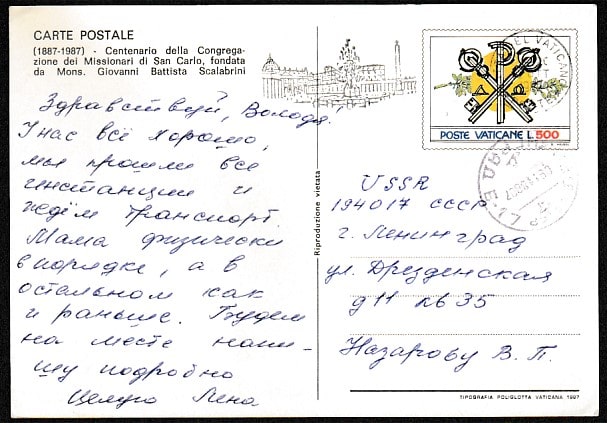 CARTE POSTALE
(1887-1987) - Centenario della Congrega-
zione dei Missionari di San Carlo, fondata
da Mons. Giovanni Battista Scalabrini
Здравствуй, Володя!
У нас всё хорошо,
мы прошли все
инстанции и
ждём транспорт.
Мама физически
в порядке, а в
остальном как
и раньше. Будем
на месте напи-
шу подробно
Целую Лена
Riproduzione vietata
POSTE VATICANE L. 500
USSR
194017 СССР
г. Ленинград
ул. Дрезденская
д 11 кв 35
Назарову В. П.
TIPOGRAFIA POLIGLOTTA VATICANA 1987